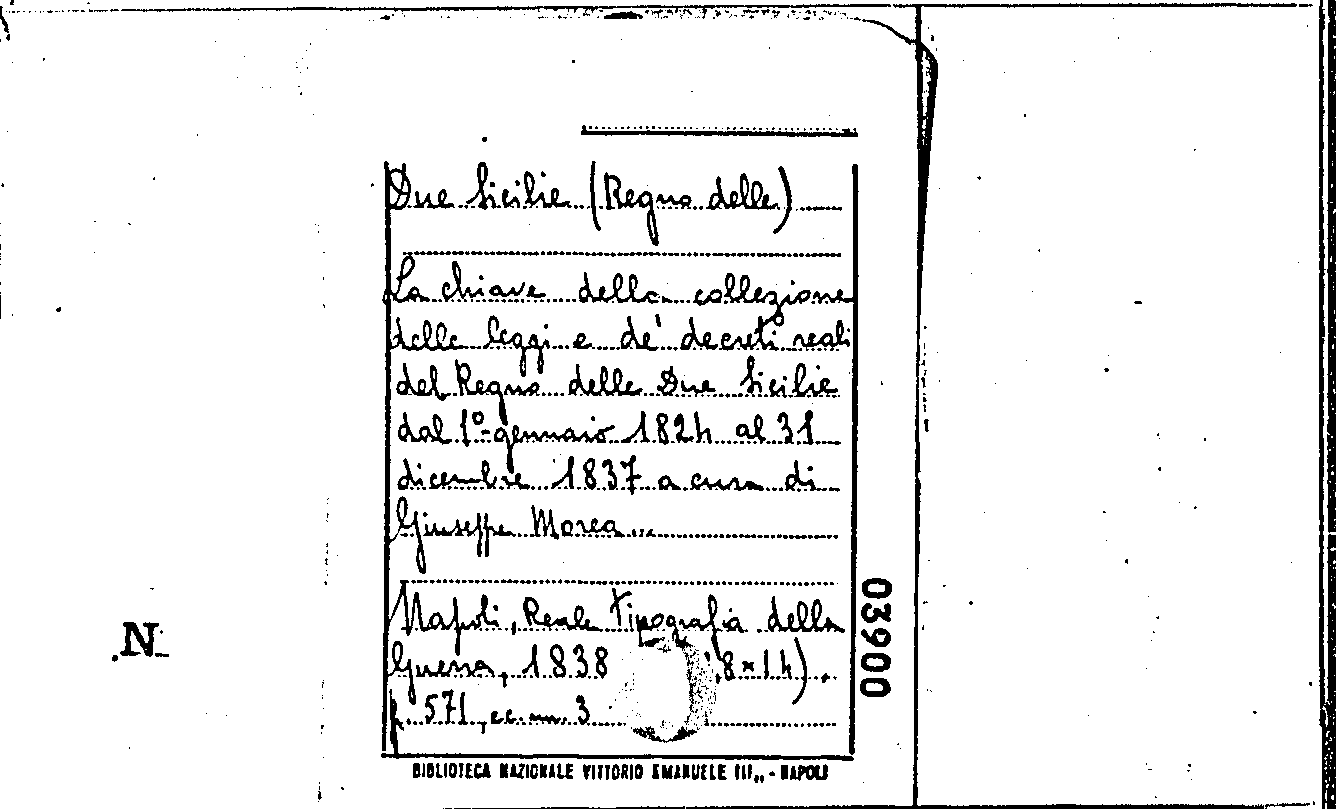 Due Sicilie (Regno delle)
La chiave della collezione
delle leggi e de' decreti reali
del Regno delle Due Sicilie
dal 1º gennaio 1824 al 31
dicembre 1837 a cura di
Giuseppe Morea...
Napoli, Reale Tipografia della
Guerra, 1838 8×14).
p. 571, cc. nn. 3
BIBLIOTECA NAZIONALE VITTORIO EMANUELE III,, - NAPOLI
03900
N